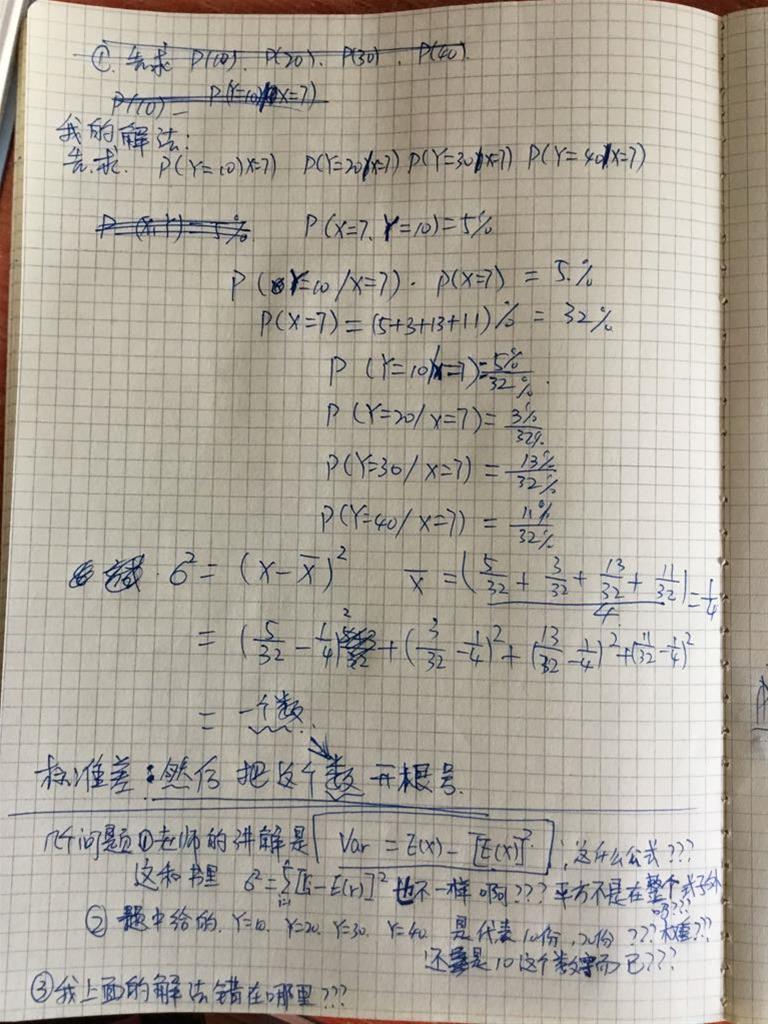 ①. 先求 P(10). P(20). P(30). P(40).
P(10) = P(Y=10/X=7)
我的解法:
先求. P(Y=10/X=7) P(Y=20/X=7) P(Y=30/X=7) P(Y=40/X=7)
P(X,Y)=5% P(X=7,Y=10)=5%
P(Y=10/X=7)·P(X=7) = 5%
P(X=7)=(5+3+13+11)% = 32%
P(Y=10/X=7)=5%/32%
P(Y=20/X=7)=3%/32%
P(Y=30/X=7)=13%/32%
P(Y=40/X=7)=11%/32%
6²=(X-X̅)² X̅=(5/32+3/32+13/32+11/32)/4=1/4
=(5/32-1/4)²+(3/32-1/4)²+(13/32-1/4)²+(11/32-1/4)²
=一个数.
标准差:然后把这个数开根号.
几个问题①老师的讲解是 Var=E(X)-[E(X)]²,这什么公式???
这和书里 6²=Σ[ri-E(r)]²也不一样啊???平方不是在整个式子外
吗???
②题中给的,Y=10. Y=20. Y=30. Y=40. 是代表10份,20份???权重???
还是10这个数字而已???
③我上面的解法错在哪里???